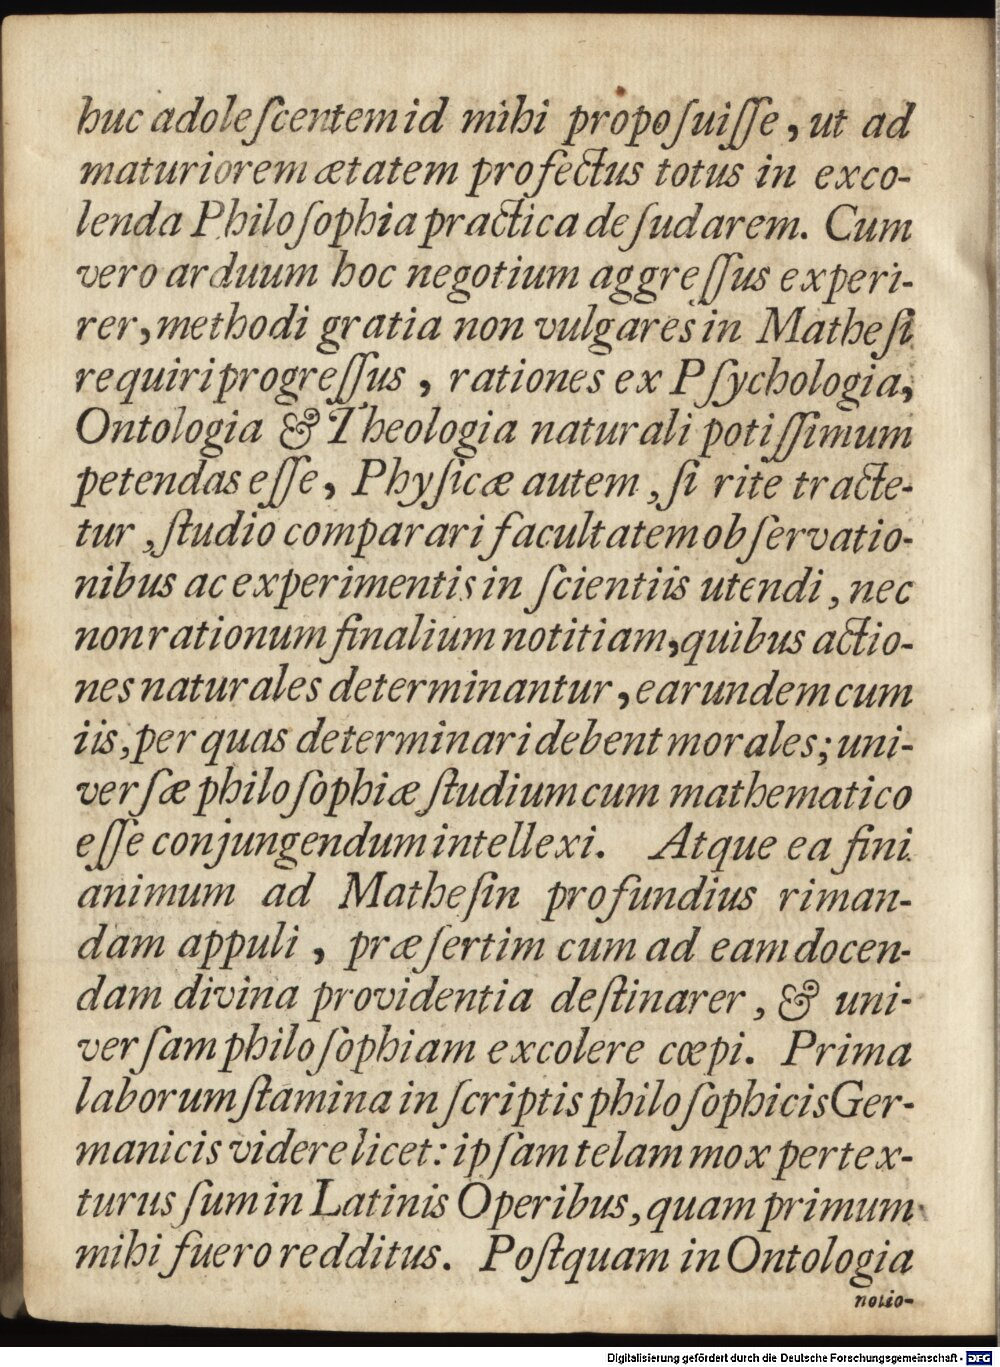 huc adoleſcentem id mihi propoſuiſſe, ut ad
maturiorem ætatem profectus totus in exco-
lenda Philoſophia practica deſudarem. Cum
vero arduum hoc negotium aggreſſus experi-
rer, methodi gratia non vulgares in Matheſi
requiri progreſſus, rationes ex Pſychologia,
Ontologia & Theologia naturali potiſſimum
petendas eſſe, Phyſicæ autem, ſi rite tracte-
tur, ſtudio comparari facultatem obſervatio-
nibus ac experimentis in ſcientiis utendi, nec
non rationum finalium notitiam, quibus actio-
nes naturales determinantur, earundem cum
iis, per quas determinari debent morales; uni-
verſæ philoſophiæ ſtudium cum mathematico
eſſe conjungendum intellexi. Atque ea fini
animum ad Matheſin profundius riman-
dam appuli, præſertim cum ad eam docen-
dam divina providentia deſtinarer, & uni-
verſam philoſophiam excolere cœpi. Prima
laborum ſtamina in ſcriptis philoſophicis Ger-
manicis videre licet: ipſam telam mox pertex-
turus ſum in Latinis Operibus, quam primum
mihi fuero redditus. Poſtquam in Ontologia
notio-
Digitalisierung gefördert durch die Deutsche Forschungsgemeinschaft - DFG